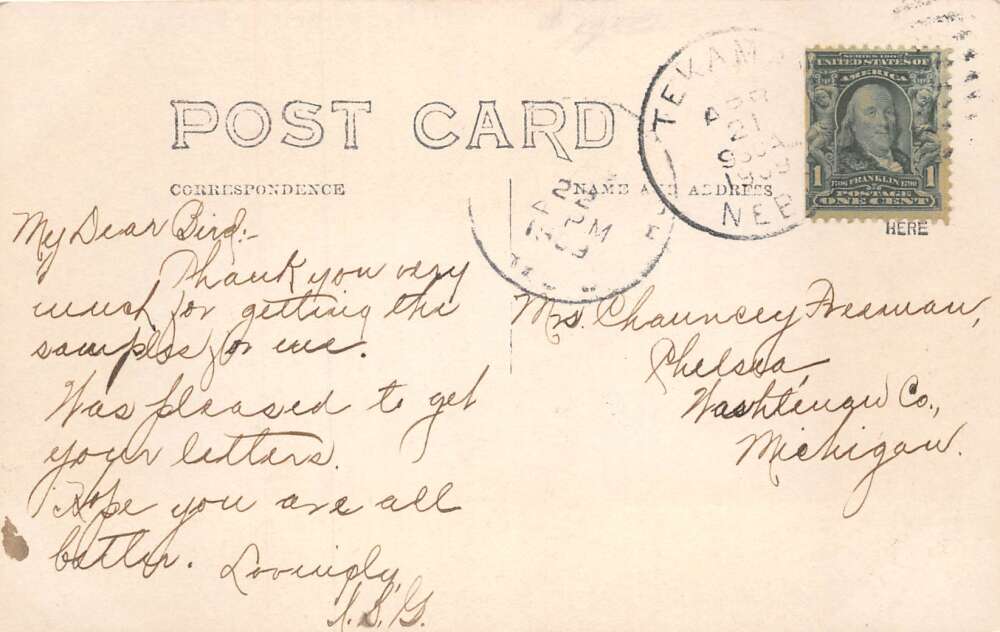 POST CARD
CORRESPONDENCE
NAME AND ADDRESS
HERE
TEKAMA
APR
21
1909
NEB
SERIES 1902
UNITED STATES OF
AMERICA
1 1706 FRANKLIN 1790 1
POSTAGE
ONE CENT
My Dear Bird:-
Thank you very
much for getting the
samples for me.
Was pleased to get
your letters.
Hope you are all
better. Lovingly,
Mrs. Chauncey Freeman,
Chelsea,
Washtenaw Co.,
Michigan.